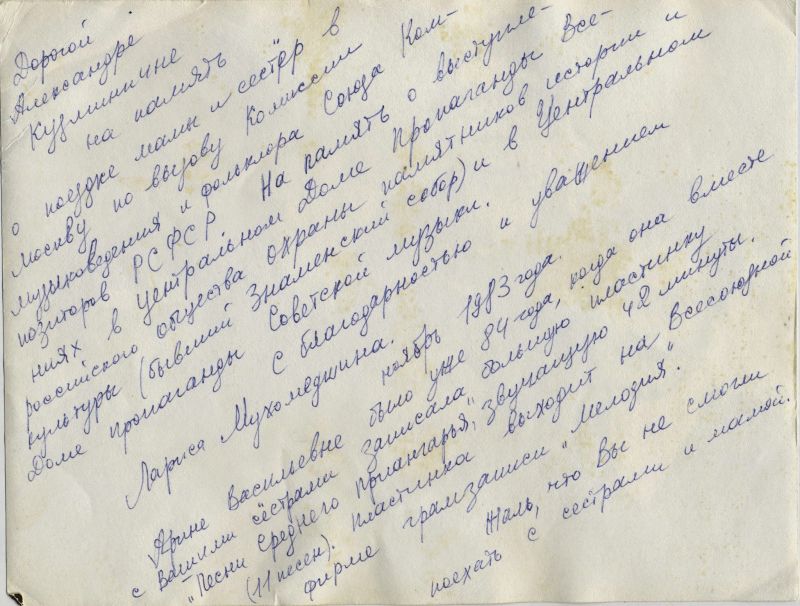 Дорогой
Александре
Кузьминичне
на память
о поездке мамы и сестёр в
Москву по вызову Комиссии
музыковедения и фольклора Союза Ком-
позиторов РСФСР. На память о выступле-
ниях в Центральном Доме Пропаганды Все-
российского общества охраны памятников истории и
культуры (бывший Знаменский собор) и в Центральном
Доме пропаганды Советской музыки.
с благодарностью и уважением
Лариса Мухомедшина.
ноябрь 1983 года.
Арине Васильевне было уже 84 года, когда она вместе
с Вашими сёстрами записала большую пластинку
"Песни Среднего Приангарья", звучащую 42 минуты.
(11 песен). Пластинка выходит на Всесоюзной
фирме грамзаписи "Мелодия".
Жаль, что Вы не смогли
поехать с сестрами и мамой.